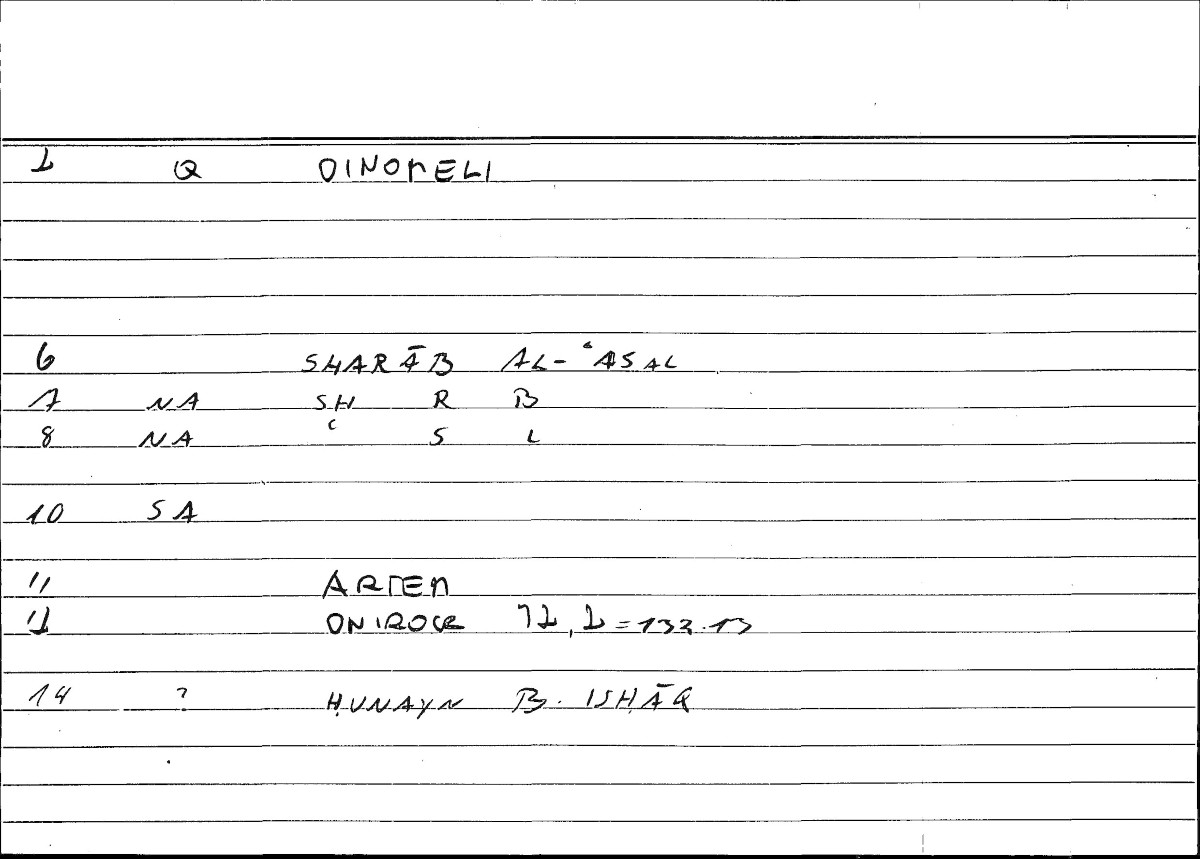 1 Q OINOMELI
6 SHARĀB AL-ʿASAL
7 NA SH R B
8 NA ʿ S L
10 SA
11 ARTEM
12 ONIROCR 72,2=133.13
14 ? ḤUNAYN B. ISḤĀQ